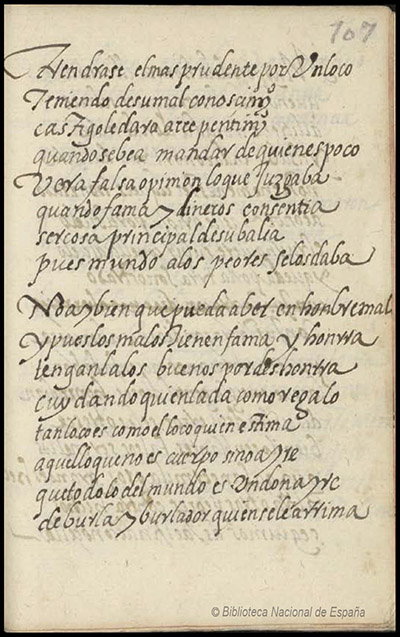 107
Tendrase el mas prudente por Un loco
Teniendo de su mal conoscimyº
castigo le dara arrepentimyº
quando se bea mandar de quien es poco
Vera falsa opinion lo que Juzgaba
quando fama y dineros consentia
ser cosa principal de su balia
pues mundo a los peores se los daba
No ay bien que pueda aber en honbre mal
y pues los malos tienen fama y honrra
tenganla los buenos por deshonrra
cuydando quien la da como regalo
tan loco es como el loco quien estima
aquello que no es cuerpo sino ayre
que todo lo del mundo es Un donayre
de burla y burlador quien se le arrima
© Biblioteca Nacional de España